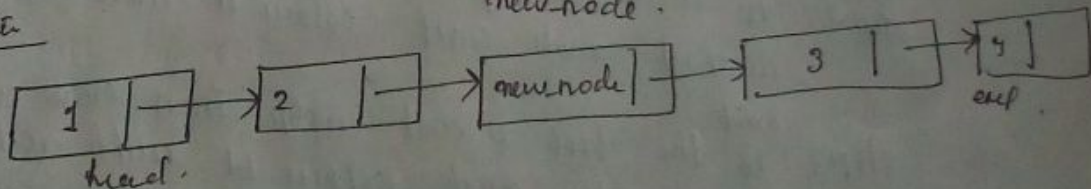 new_node.
1 2 new_node 3 4
head.